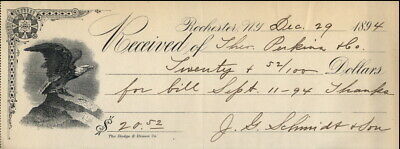 Rochester, N.Y. Dec. 29 1894
Received of Theo. Perkins & Co.
Twenty & 52/100 Dollars
for bill Sept. 11-94 Thanks
$20.52
J. G. Schmidt & Son